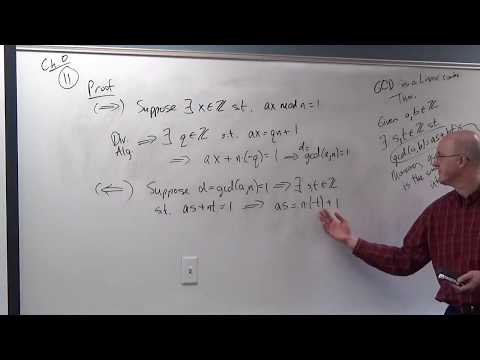 Ch 0
11
Proof
(⇒) Suppose ∃ x∈ℤ st. ax mod n = 1
Div. Alg. ⇒ ∃ q∈ℤ s.t. ax = qn + 1
⇒ ax + n(-q) = 1 ⇒ d = gcd(a,n) = 1
(⇐) Suppose d = gcd(a,n) = 1 ⇒ ∃ s,t∈ℤ
st. as + nt = 1 ⇒ as = n(-t) + 1
GCD is a Linear
Thm.
Given a,b∈ℤ
∃ s,t∈ℤ st
gcd(a,b) = as + bt
Moreover,
is the